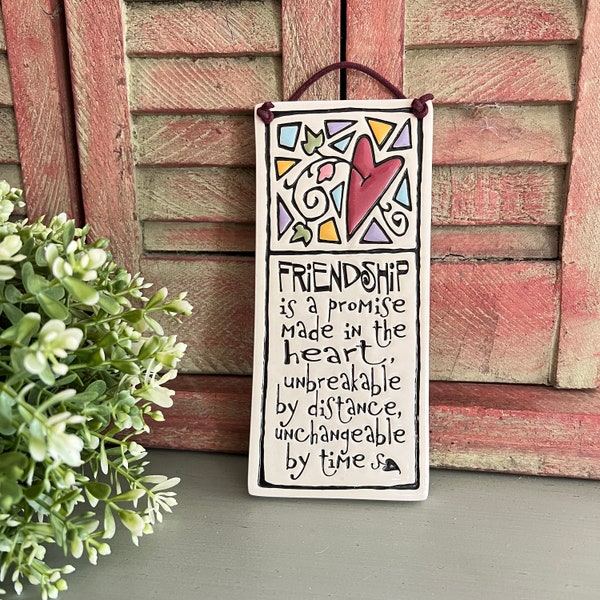 FRIENDSHIP
is a promise
made in the
heart,
unbreakable
by distance,
unchangeable
by time